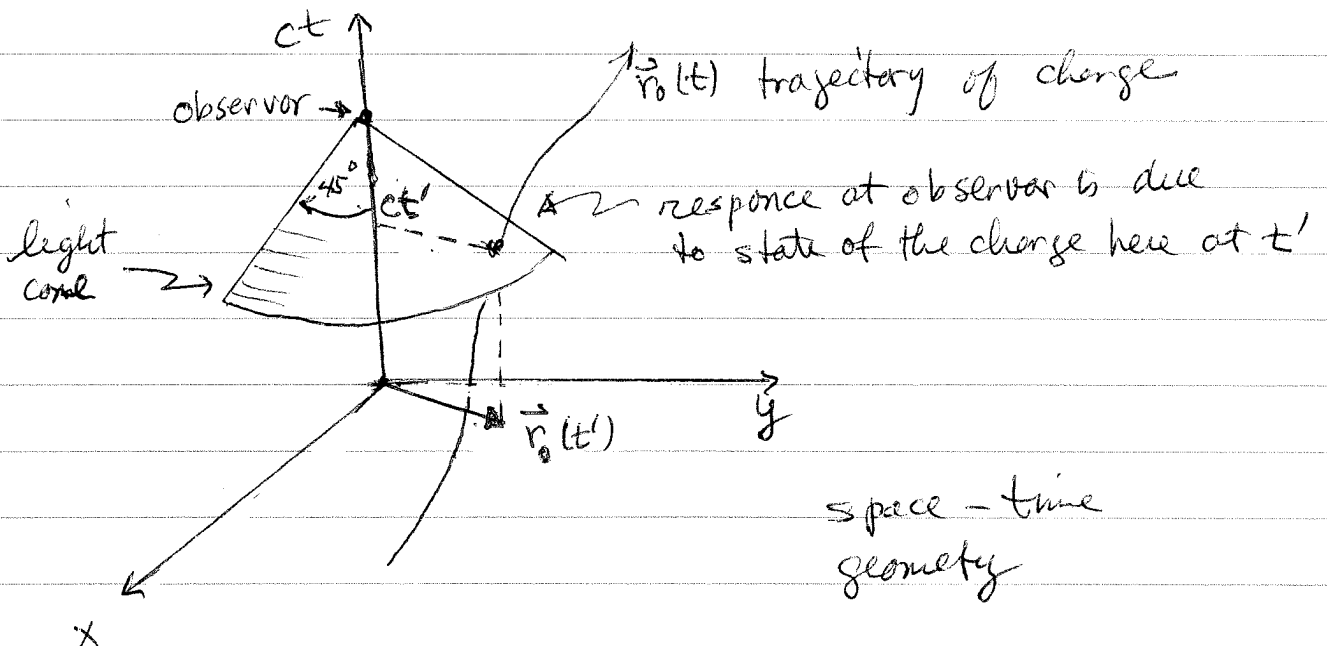 ct
observor
r⃗₀(t) trajectory of charge
45°
ct'
responce at observor is due
to state of the charge here at t'
light
cone
y
r⃗₀(t')
space - time
geometry
x